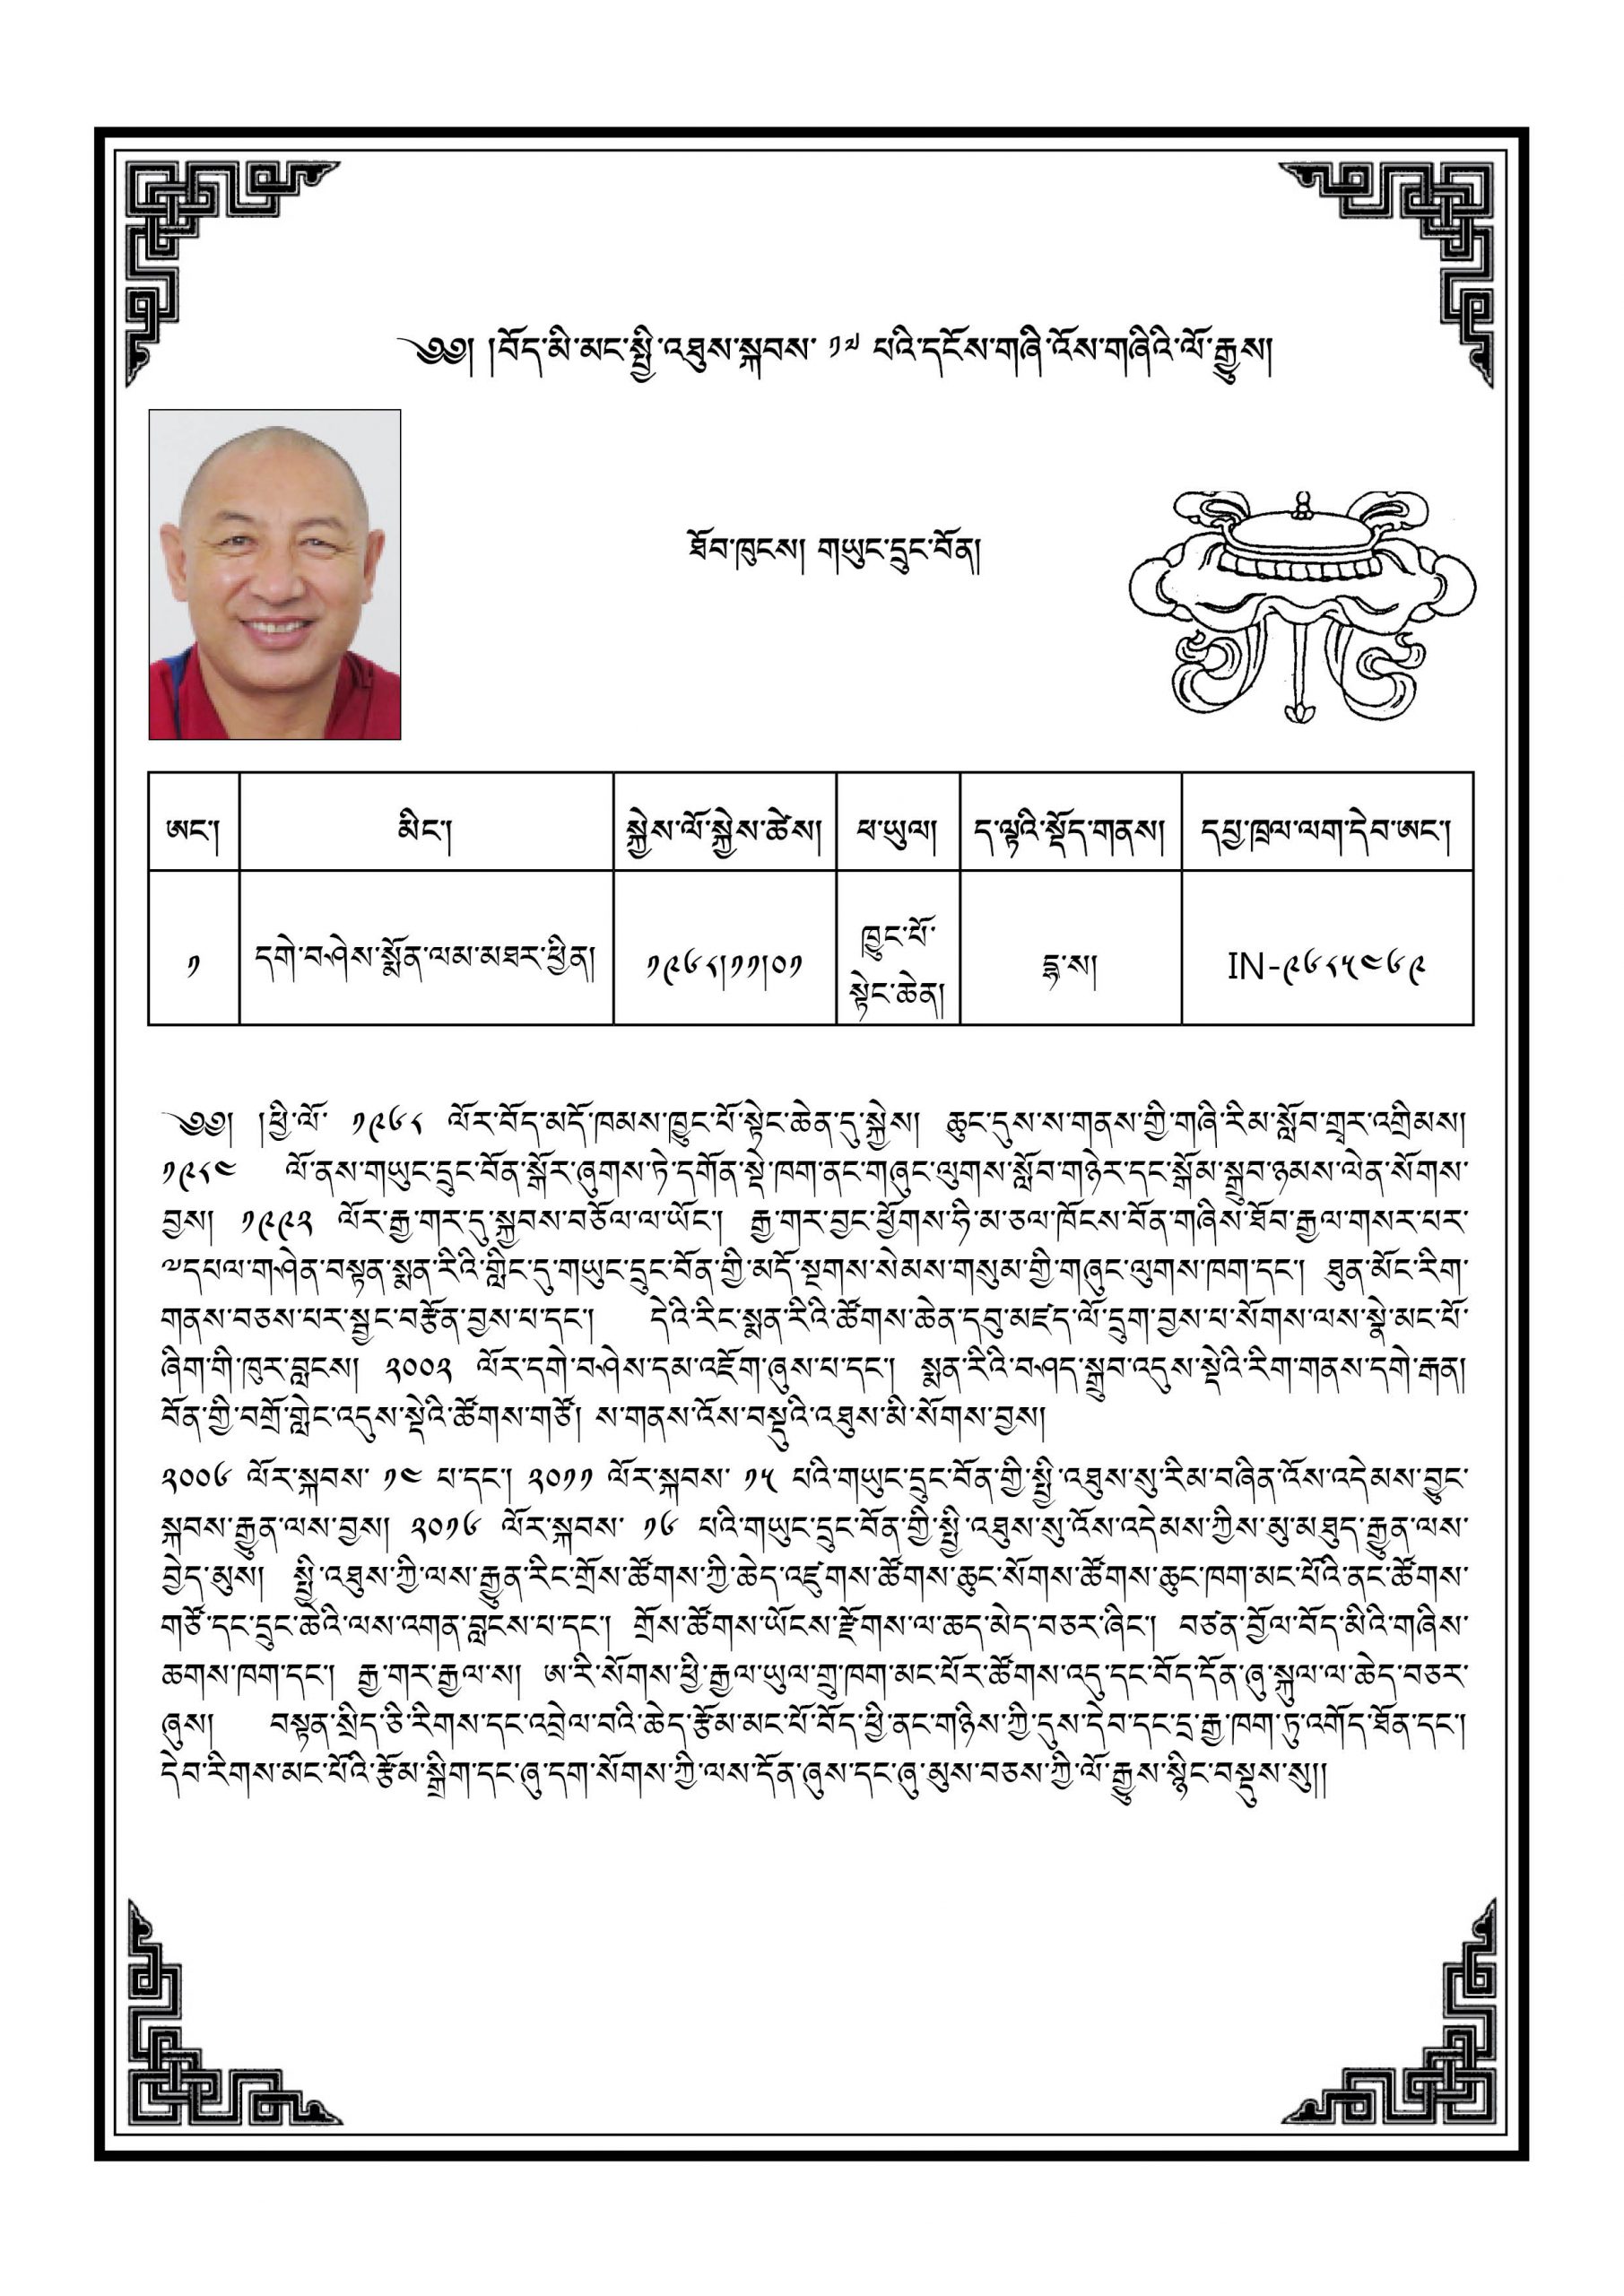 ༄༅། །བོད་མི་མང་སྤྱི་འཐུས་སྐབས་ ༡༧ པའི་དངོས་གཞི་འོས་གཞིའི་ལོ་རྒྱུས།
ཐོབ་ཁུངས། གཡུང་དྲུང་བོན།
ཨང་། མིང་། སྐྱེས་ལོ་སྐྱེས་ཚེས། ཕ་ཡུལ། ད་ལྟའི་སྡོད་གནས། དཔྱ་ཁྲལ་ལག་དེབ་ཨང་།
༡ དགེ་བཤེས་སྨོན་ལམ་མཐར་ཕྱིན། ༡༩༦༨།༡༡།༠༡ ཁྱུང་པོ་སྟེང་ཆེན། དྷ་ས། IN-༩༦༨༥༤༦༩
༄༅། །ཕྱི་ལོ་ ༡༩༦༨ ལོར་བོད་མདོ་ཁམས་ཁྱུང་པོ་སྟེང་ཆེན་དུ་སྐྱེས། ཆུང་དུས་ས་གནས་ཀྱི་གཞི་རིམ་སློབ་གྲྭར་འགྲིམས།
༡༩༨༤ ལོ་ནས་གཡུང་དྲུང་བོན་སྒོར་ཞུགས་ཏེ་དགོན་སྡེ་ཁག་ནང་གཞུང་ལུགས་སློབ་གཉེར་དང་སྒོམ་སྒྲུབ་ཉམས་ལེན་སོགས་
བྱས། ༡༩༩༢ ལོར་རྒྱ་གར་དུ་སྐྱབས་བཅོལ་ལ་ཡོང་། རྒྱ་གར་བྱང་ཕྱོགས་ཧི་མ་ཅལ་ཁོངས་བོན་གཞིས་ཐོབ་རྒྱལ་གསར་པར་
༧དཔལ་གཤེན་བསྟན་སྨན་རིའི་གླིང་དུ་གཡུང་དྲུང་བོན་གྱི་མདོ་སྔགས་སེམས་གསུམ་གྱི་གཞུང་ལུགས་ཁག་དང་། ཐུན་མོང་རིག་
གནས་བཅས་པར་སྦྱང་བརྩོན་བྱས་པ་དང་། དེའི་རིང་སྨན་རིའི་ཚོགས་ཆེན་དབུ་མཛད་ལོ་དྲུག་བྱས་པ་སོགས་ལས་སྣེ་མང་པོ་
ཞིག་གི་ཁུར་བླངས། ༢༠༠༢ ལོར་དགེ་བཤེས་དམ་འཇོག་ཞུས་པ་དང་། སྨན་རིའི་བཤད་སྒྲུབ་འདུས་སྡེའི་རིག་གནས་དགེ་རྒན།
བོན་གྱི་བགྲོ་གླེང་འདུས་སྡེའི་ཚོགས་གཙོ། ས་གནས་འོས་བསྡུའི་འཐུས་མི་སོགས་བྱས།
༢༠༠༦ ལོར་སྐབས་ ༡༤ པ་དང་། ༢༠༡༡ ལོར་སྐབས་ ༡༥ པའི་གཡུང་དྲུང་བོན་གྱི་སྤྱི་འཐུས་སུ་རིམ་བཞིན་འོས་འདེམས་བྱུང་
སྐབས་རྒྱུན་ལས་བྱས། ༢༠༡༦ ལོར་སྐབས་ ༡༦ པའི་གཡུང་དྲུང་བོན་གྱི་སྤྱི་འཐུས་སུ་འོས་འདེམས་ཀྱིས་མུ་མཐུད་རྒྱུན་ལས་
བྱེད་མུས། སྤྱི་འཐུས་ཀྱི་ལས་རྒྱུན་རིང་གྲོས་ཚོགས་ཀྱི་ཆེད་འཛུགས་ཚོགས་ཆུང་སོགས་ཚོགས་ཆུང་ཁག་མང་པོའི་ནང་ཚོགས་
གཙོ་དང་དྲུང་ཆེའི་ལས་འགན་བླངས་པ་དང་། གྲོས་ཚོགས་ཡོངས་རྫོགས་ལ་ཆད་མེད་བཅར་ཞིང་། བཙན་བྱོལ་བོད་མིའི་གཞིས་
ཆགས་ཁག་དང་། རྒྱ་གར་རྒྱལ་ས། ཨ་རི་སོགས་ཕྱི་རྒྱལ་ཡུལ་གྲུ་ཁག་མང་པོར་ཚོགས་འདུ་དང་བོད་དོན་ཞུ་སྐུལ་ལ་ཆེད་བཅར་
ཞུས། བསྟན་སྲིད་ཅི་རིགས་དང་འབྲེལ་བའི་ཆེད་རྩོམ་མང་པོ་བོད་ཕྱི་ནང་གཉིས་ཀྱི་དུས་དེབ་དང་དྲ་རྒྱ་ཁག་ཏུ་འགོད་ཐོན་དང་།
དེབ་རིགས་མང་པོའི་རྩོམ་སྒྲིག་དང་ཞུ་དག་སོགས་ཀྱི་ལས་དོན་ཞུས་དང་ཞུ་མུས་བཅས་ཀྱི་ལོ་རྒྱུས་སྙིང་བསྡུས་སུ།།